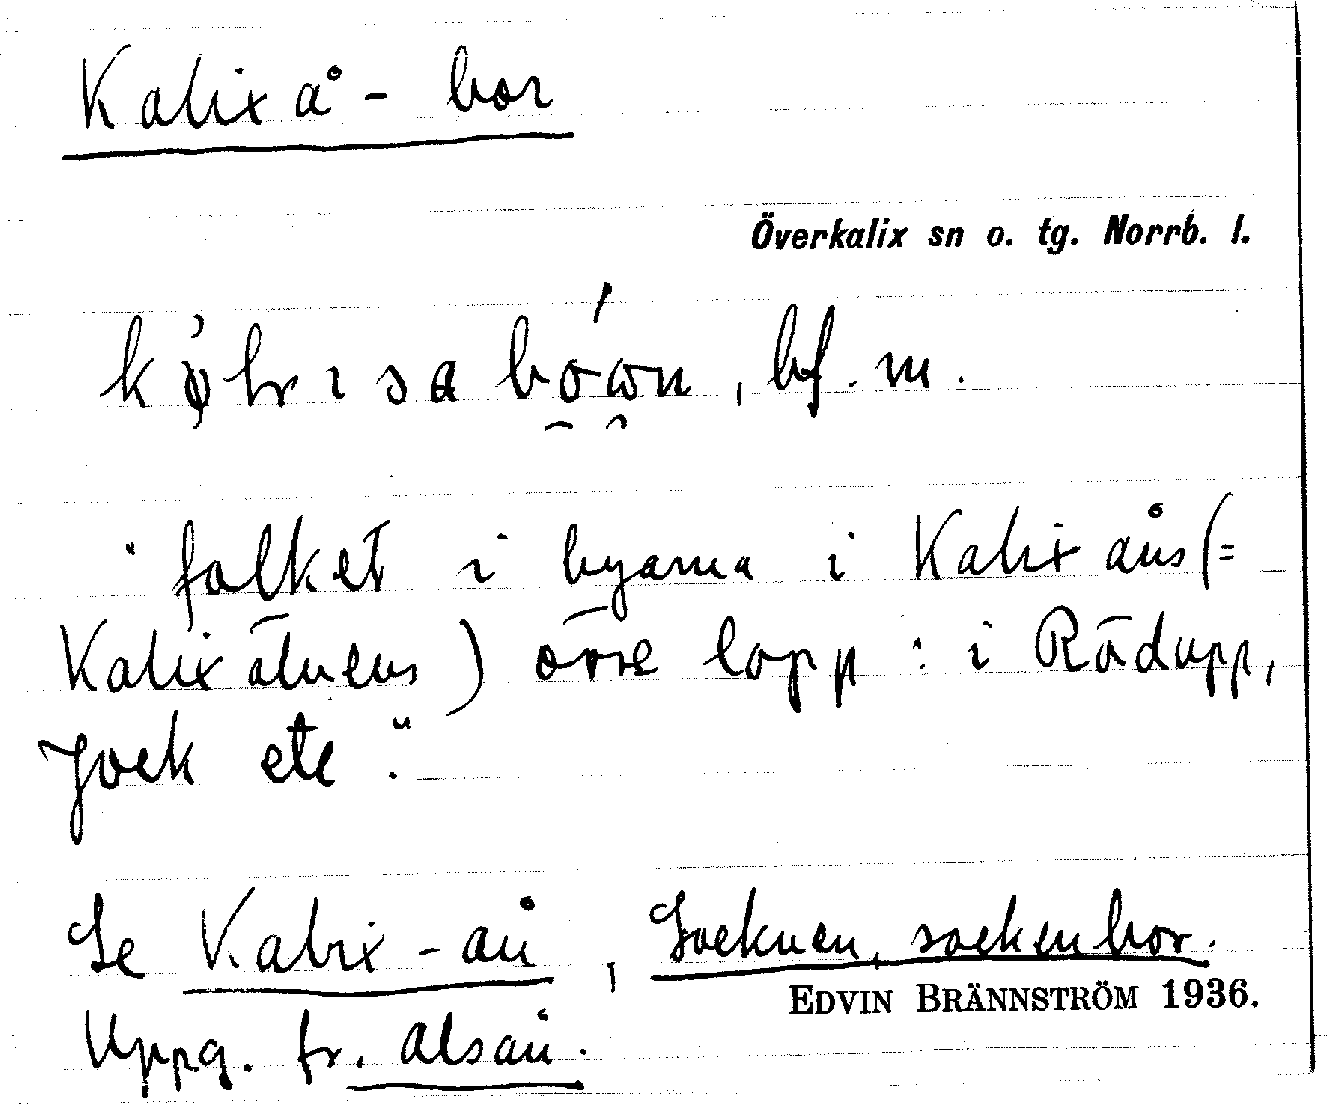 Kalixå-bor
Överkalix sn o. tg. Norrb. l.
bf. m.
"folket i byarna i Kalix åns (=
Kalixälvens) övre lopp: i Rödupp,
Jock etc."
Se Kalix-ån, Socknen, sockenbor.
EDVIN BRÄNNSTRÖM 1936.
Uppg. fr. Alsån.